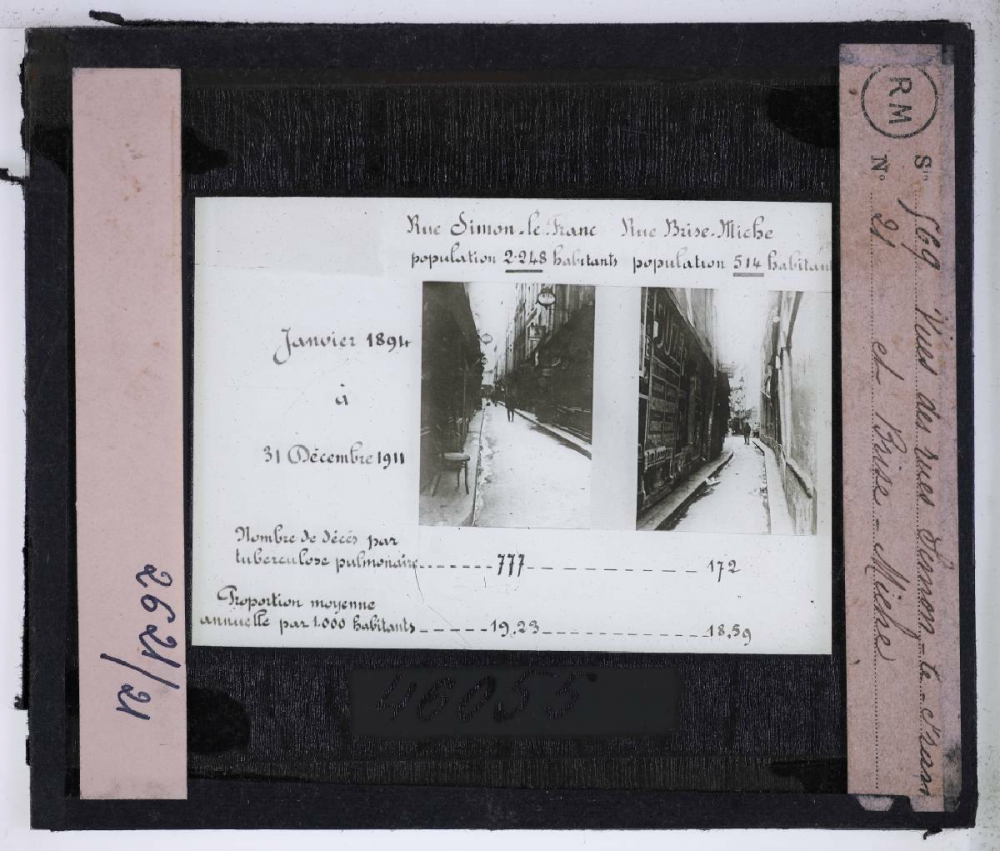 Rue Simon-le-Franc Rue Brise-Miche
population 2.248 habitants population 514 habitan
Janvier 1894
à
31 Décembre 1911
Nombre de décès par
tuberculose pulmonaire 777 172
Proportion moyenne
annuelle par 1.000 habitants 19,23 18,59
40055
2621/21
RM
Sie 569 Vues des rues Simon-le-
N° 21 et Brise-Miche